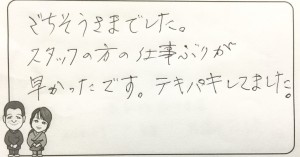 ごちそうさまでした。
スタッフの方の仕事ぶりが
早かったです。テキパキしてました。